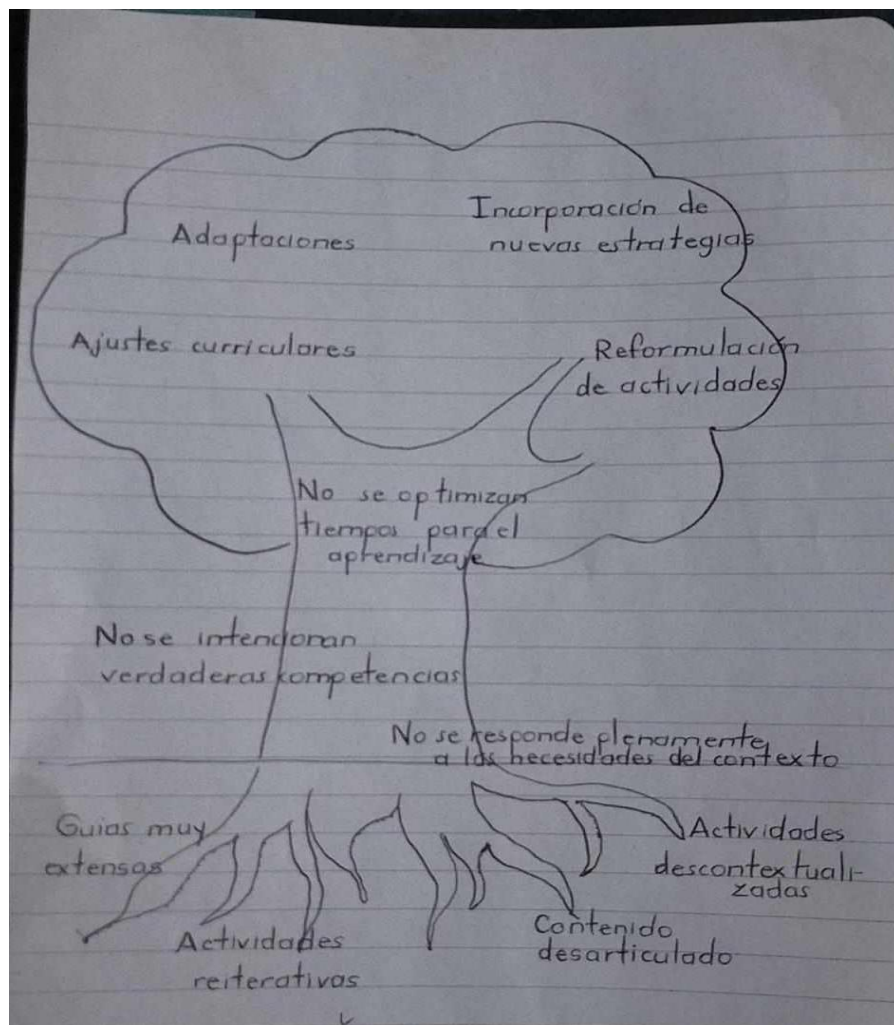 Adaptaciones
Incorporación de
nuevas estrategias
Ajustes curriculares
Reformulación
de actividades
No se optimizan
tiempos para el
aprendizaje
No se intencionan
verdaderas kompetencias
No se responde plenamente
a las necesidades del contexto
Guias muy
extensas
Actividades
reiterativas
Contenido
desarticulado
Actividades
descontextuali-
zadas